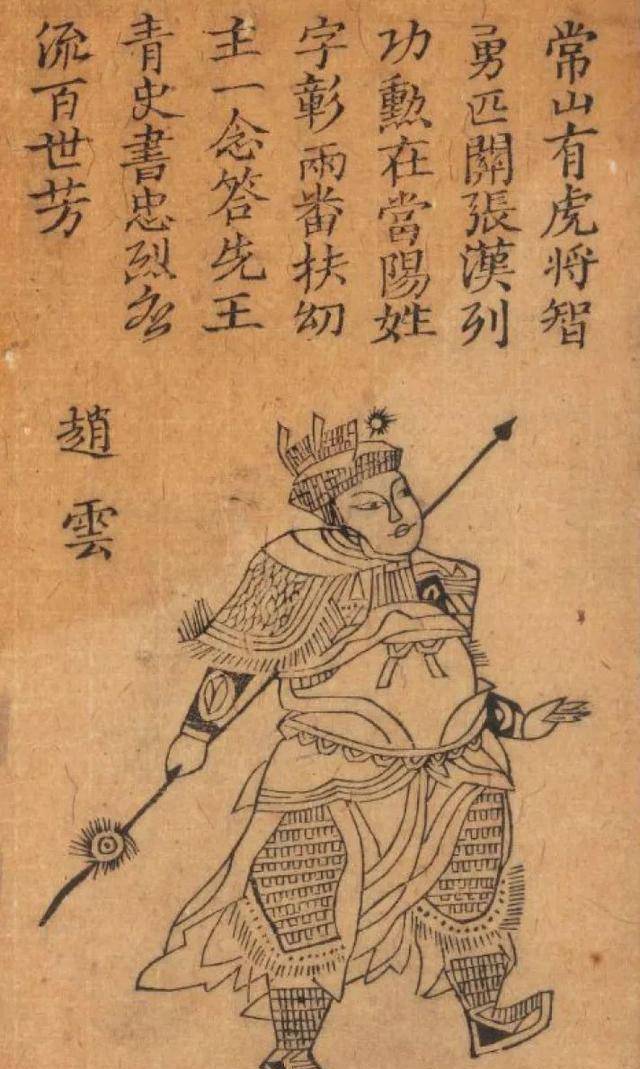 常山有虎将智
勇匹關張漢列
功勲在當陽姓
字彰兩番扶幼
主一念答先王
青史書忠烈名
流百世芳
趙雲